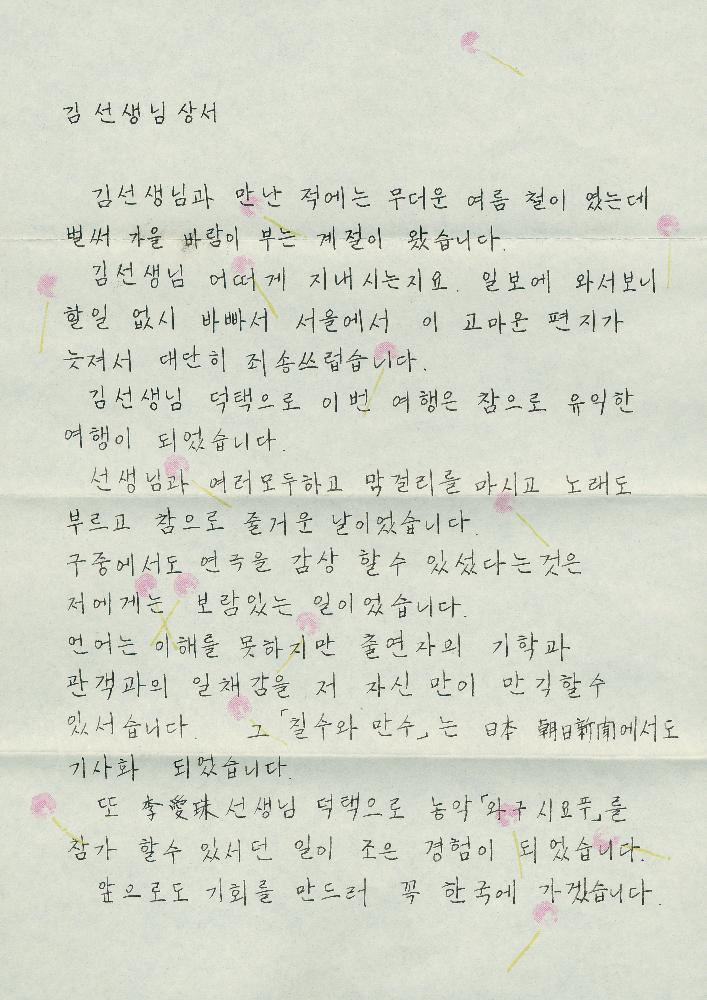 김 선생님 상서
김선생님과 만난 적에는 무더운 여름 철이 였는데
벌써 가을 바람이 부는 계절이 왔습니다.
김선생님 어떠게 지내시는지요. 일보에 와서보니
할일 없시 바빠서 서울에서 이 고마운 편지가
늦져서 대단히 죄송쓰럽습니다.
김선생님 덕택으로 이번 여행은 참으로 유익한
여행이 되었습니다.
선생님과 여러모두하고 막걸리를 마시고 노래도
부르고 참으로 줄거운 날이었습니다.
구중에서도 연극을 감상 할수 있섰다는것은
저에게는 보람있는 일이었습니다.
언어는 이해를 못하지만 출연자의 기학과
관객과의 일채감을 저 자신 만이 만긱할수
있서습니다. 그「칠수와 만수」는 日本 朝日新聞에서도
기사화 되었습니다.
또 李愛珠선생님 덕택으로 농악「와구 시요푸」를
참가 할수 있서던 일이 조은 경험이 되었습니다.
앞으로도 기회를 만드러 꼭 한국에 가겠습니다.